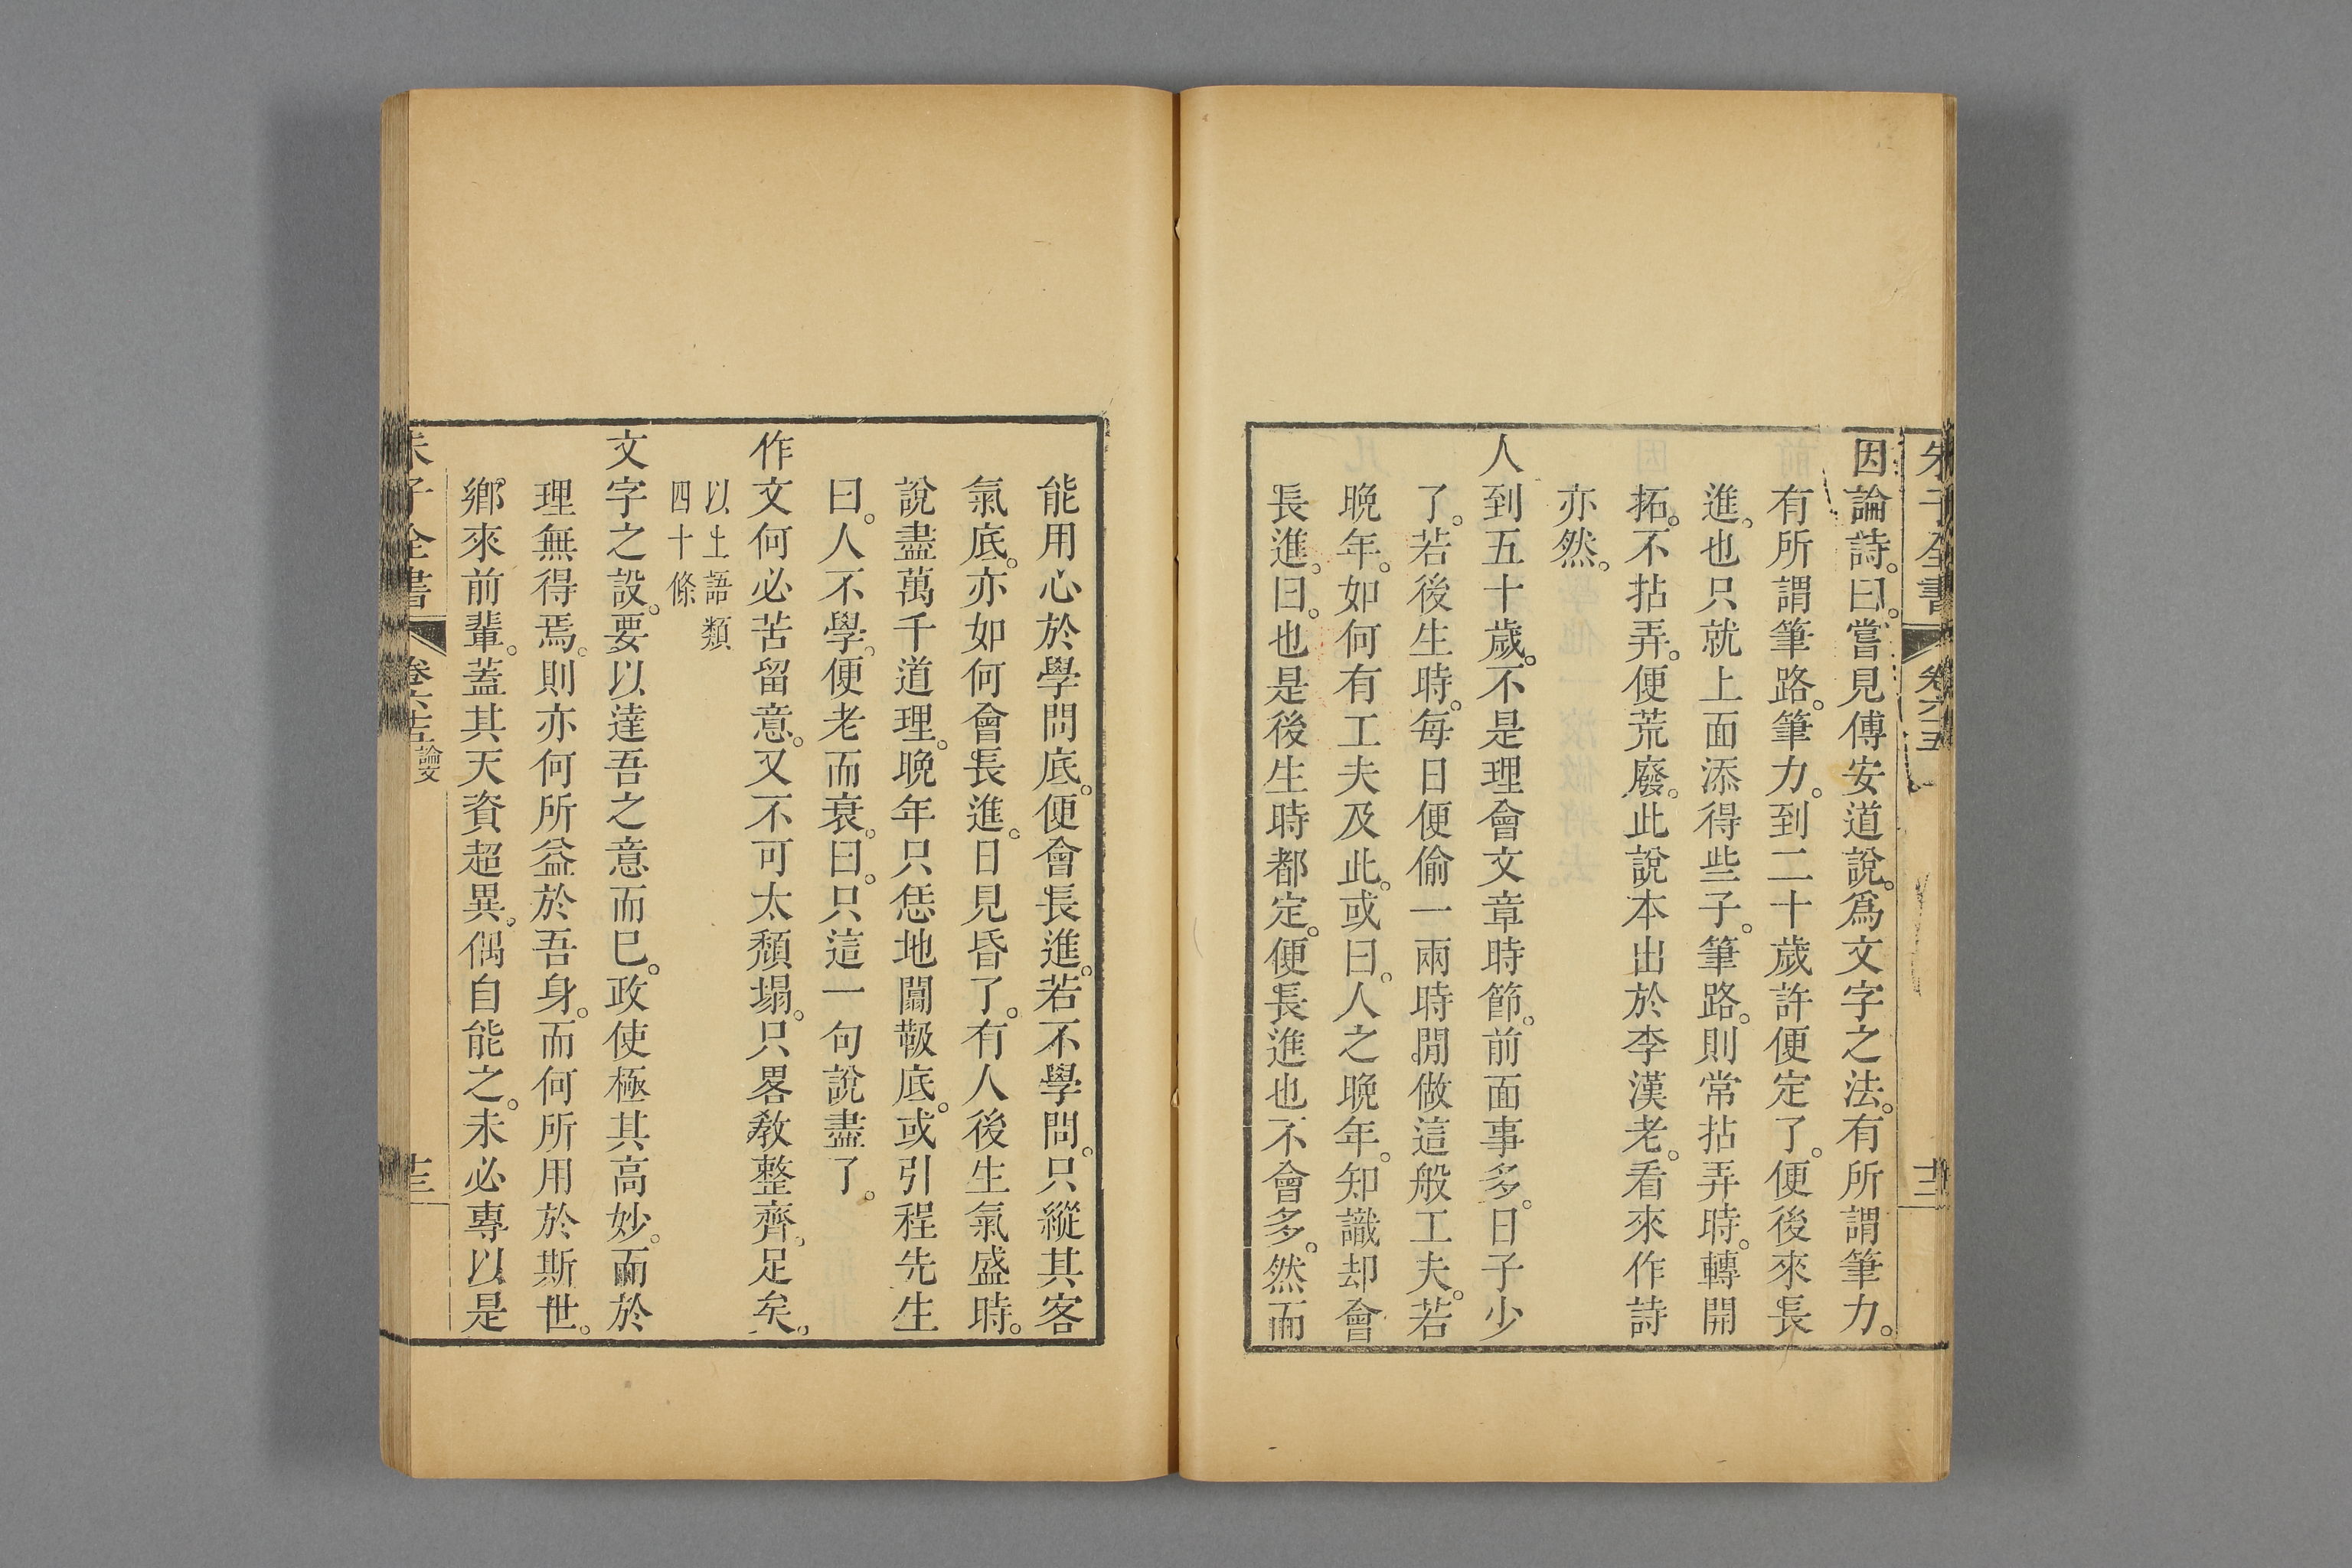 朱子全書 卷六十五 十二
因論詩。曰。嘗見傅安道說。爲文字之法。有所謂筆力。
有所謂筆路。筆力。到二十歲許便定了。便後來長
進。也只就上面添得些子。筆路。則常拈弄時。轉開
拓。不拈弄。便荒廢。此說本出於李漢老。看來作詩
亦然。
人到五十歲。不是理會文章時節。前面事多。日子少
了。若後生時。每日便偷一兩時閒做這般工夫。若
晚年。如何有工夫及此。或曰。人之晚年。知識却會
長進。曰。也是後生時都定。便長進也不會多。然而
能用心於學問底。便會長進。若不學問。只縱其客
氣底。亦如何會長進。日見昏了。有人後生氣盛時。
說盡萬千道理。晚年只恁地闒靸底。或引程先生
曰。人不學。便老而衰。曰。只這一句說盡了。
作文何必苦留意。又不可太頹塌。只畧教整齊。足矣。
以上語類
四十條
文字之設。要以達吾之意而已。政使極其高妙。而於
理無得焉。則亦何所益於吾身。而何所用於斯世。
鄉來前輩。蓋其天資超異。偶自能之。未必專以是
朱子全書 卷六十五 論文 十三